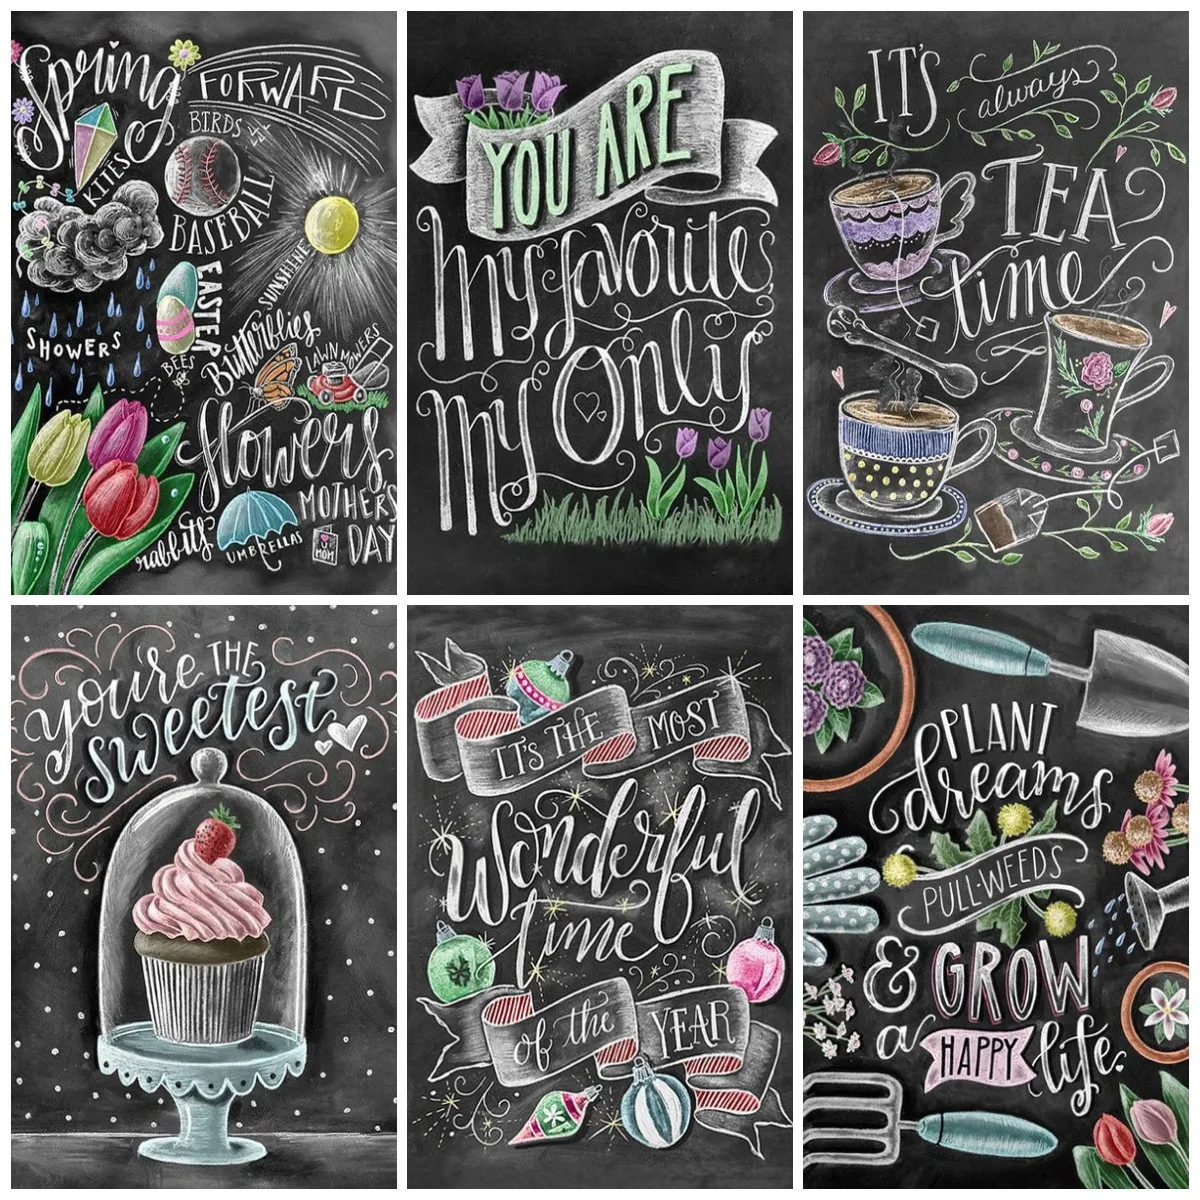 Spring
FORWARD
BIRDS
KITES
BASEBALL
SUNSHINE
EASTER
SHOWERS
Butterflies
BEES
LAWN MOWERS
flowers
MOTHER'S
DAY
rabbits
UMBRELLAS
MOM
YOU ARE
My favorite
My Only
IT'S
always
TEA
time
you're THE
sweetest
IT'S THE MOST
Wonderful
time
of the YEAR
PLANT
dreams
PULL·WEEDS
& GROW
a HAPPY life.